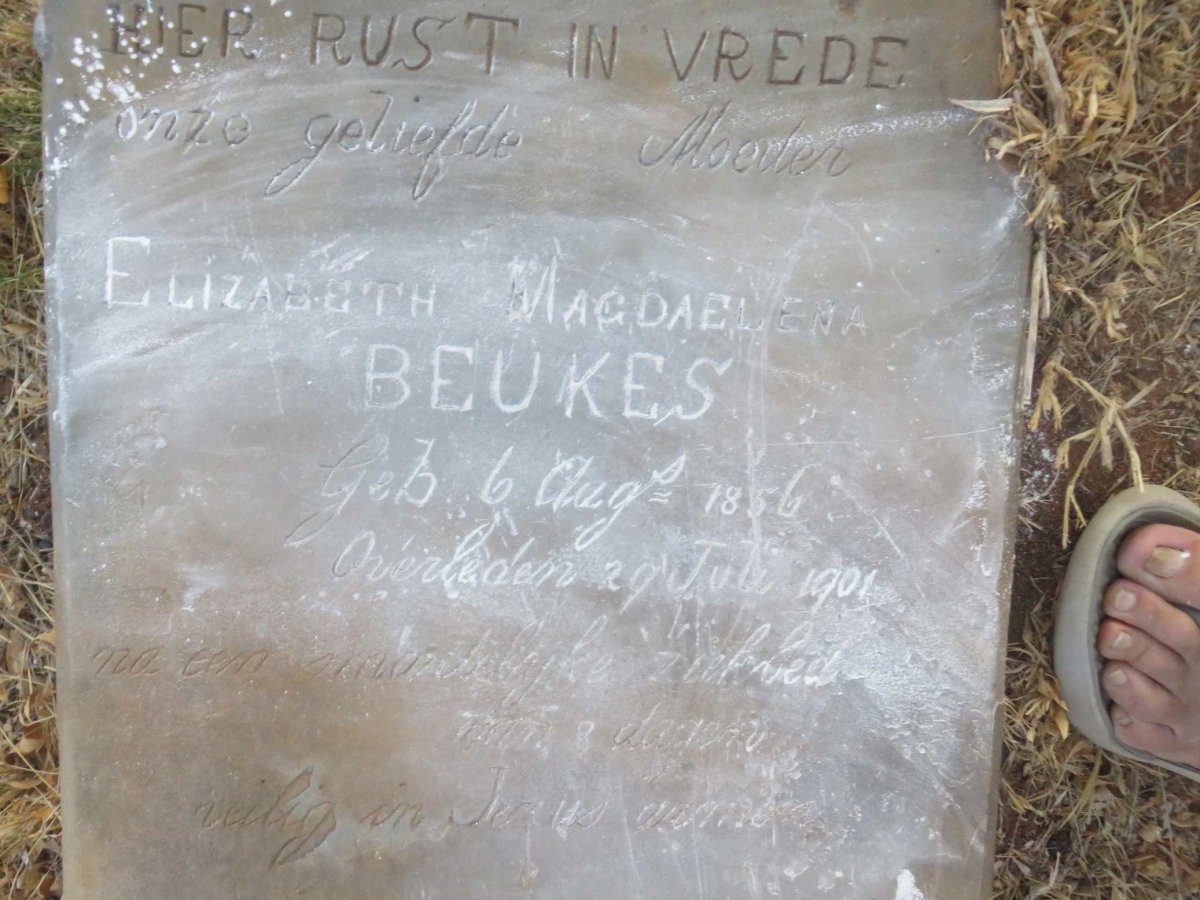 HIER RUST IN VREDE
onze geliefde Moeder
ELIZABETH MAGDAELENA
BEUKES
Geb 6 Augs 1856
Overleden 29 Juli 1901
na een smartelyke ziekbed
van 8 dagen
veilig in Jezus armen